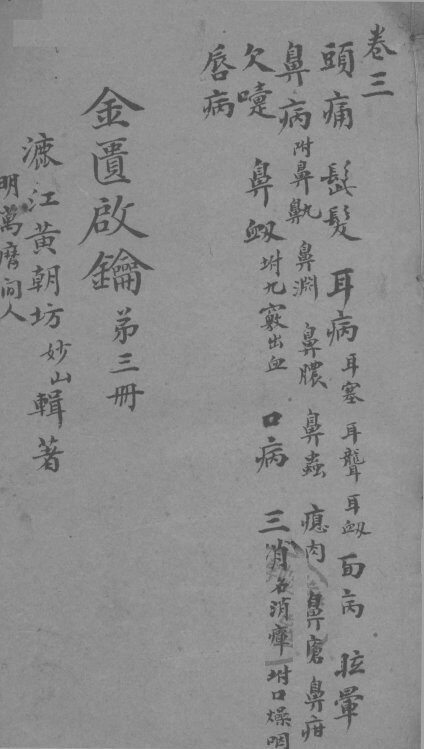 卷三
頭痛 髭髮 耳病 耳塞 耳聾 耳衂 面病 眩暈
鼻病 附鼻鼽 鼻淵 鼻膿 鼻蟲 瘜肉 鼻瘡 鼻疳
欠嚏 鼻衂 坿九竅出血 口病 三消 名消癉 坿口燥咽
唇病
金匱啟鑰 弟三冊
漉江黄朝坊妙山輯著
明萬曆间人